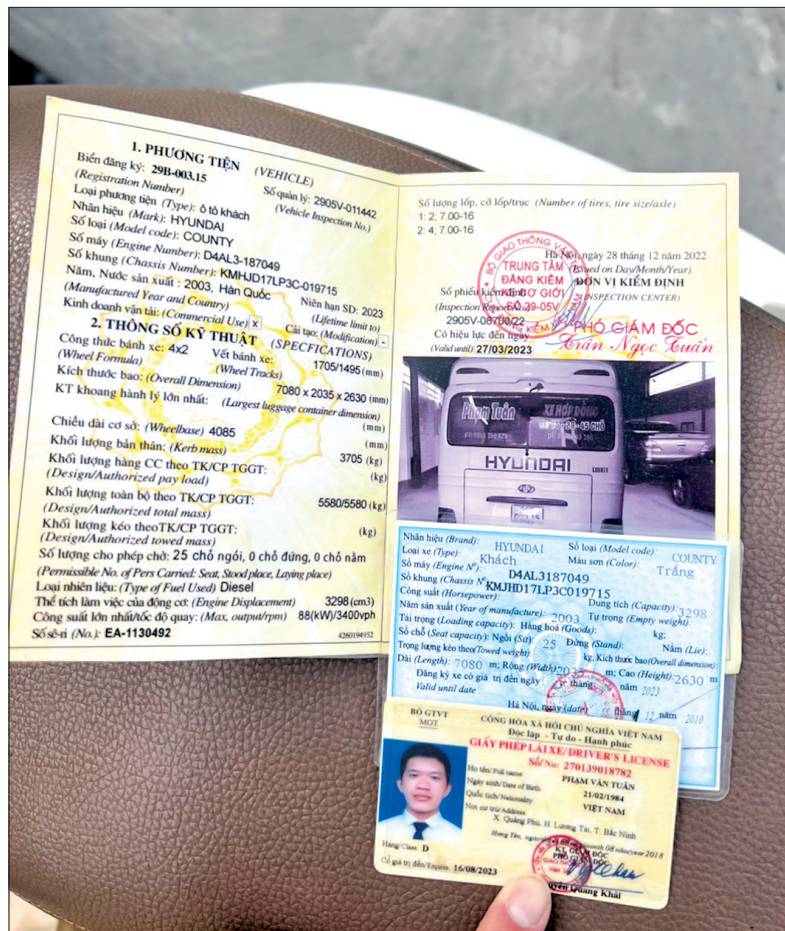 1. PHƯƠNG TIỆN (VEHICLE)
Biển đăng ký: 29B-003.15 Số quản lý: 2905V-011442
(Registration Number) (Vehicle Inspection No.)
Loại phương tiện (Type): ô tô khách
Nhãn hiệu (Mark): HYUNDAI
Số loại (Model code): COUNTY
Số máy (Engine Number): D4AL3-187049
Số khung (Chassis Number): KMHJD17LP3C-019715
Năm, Nước sản xuất : 2003, Hàn Quốc Niên hạn SD: 2023
(Manufactured Year and Country) (Lifetime limit to)
Kinh doanh vận tải: (Commercial Use) x Cải tạo: (Modification) -
2. THÔNG SỐ KỸ THUẬT (SPECFICATIONS)
Công thức bánh xe: 4x2 Vết bánh xe: 1705/1495 (mm)
(Wheel Formula) (Wheel Tracks)
Kích thước bao: (Overall Dimension) 7080 x 2035 x 2630 (mm)
KT khoang hành lý lớn nhất: (Largest luggage container dimension)
(mm)
Chiều dài cơ sở: (Wheelbase) 4085 (mm)
Khối lượng bản thân: (Kerb mass) 3705 (kg)
Khối lượng hàng CC theo TK/CP TGGT: (kg)
(Design/Authorized pay load)
Khối lượng toàn bộ theo TK/CP TGGT: 5580/5580 (kg)
(Design/Authorized total mass)
Khối lượng kéo theoTK/CP TGGT: (kg)
(Design/Authorized towed mass)
Số lượng cho phép chở: 25 chỗ ngồi, 0 chỗ đứng, 0 chỗ nằm
(Permissible No. of Pers Carried: Seat, Stood place, Laying place)
Loại nhiên liệu: (Type of Fuel Used) Diesel
Thể tích làm việc của động cơ: (Engine Displacement) 3298 (cm3)
Công suất lớn nhất/tốc độ quay: (Max, output/rpm) 88(kW)/3400vph
Số sê-ri (No.): EA-1130492 4260194952
Số lượng lốp, cỡ lốp/trục (Number of tires, tire size/axle)
1: 2; 7.00-16
2: 4; 7.00-16
Hà Nội, ngày 28 tháng 12 năm 2022
(Issued on Day/Month/Year)
BỘ GIAO THÔNG VẬN
TRUNG TÂM
ĐĂNG KIỂM
XE CƠ GIỚI
SỐ 29-05V
ĐƠN VỊ KIỂM ĐỊNH
(INSPECTION CENTER)
Số phiếu kiểm định
(Inspection Report No)
2905V-08700/22
PHÓ GIÁM ĐỐC
Có hiệu lực đến ngày
(Valid until) 27/03/2023
Trần Ngọc Tuấn
Phạm Tuân XE HỢP ĐỒNG
45 CHỖ
HYUNDAI COUNTY
Nhãn hiệu (Brand): HYUNDAI Số loại (Model code): COUNTY
Loại xe (Type): Khách Màu sơn (Color): Trắng
Số máy (Engine Nº) D4AL3187049
Số khung (Chassis Nº) KMJHD17LP3C019715
Công suất (Horsepower): Dung tích (Capacity): 3298
Năm sản xuất (Year of manufacture): 2003 Tự trọng (Empty weight):
Tải trọng (Loading capacity): Hàng hoá (Goods): kg;
Số chỗ (Seat capacity): Ngồi (Sit): 25 Đứng (Stand): Nằm (Lie):
Trọng lượng kéo theo(Towed weight) kg; Kích thước bao(Overall dimension):
Dài (Length): 7080 m; Rộng (Width): 2035 m; Cao (Height): 2630 m
Đăng ký xe có giá trị đến ngày tháng năm 2023
Valid until date
Hà Nội, ngày (date) tháng 12 năm 2010
BỘ GTVT CỘNG HÒA XÃ HỘI CHỦ NGHĨA VIỆT NAM
MOT Độc lập - Tự do - Hạnh phúc
GIẤY PHÉP LÁI XE/DRIVER'S LICENSE
Số/No: 270139018782
Họ tên/Full name PHẠM VĂN TUÂN
Ngày sinh/Date of Birth 21/02/1984
Quốc tịch/Nationality VIỆT NAM
Nơi cư trú/Address
X. Quảng Phú, H. Lương Tài, T. Bắc Ninh
08 năm/year 2018
KT. GIÁM ĐỐC
PHÓ GIÁM ĐỐC
Hạng/Class: D
Có giá trị đến/Expires: 16/08/2023
Quang Khải